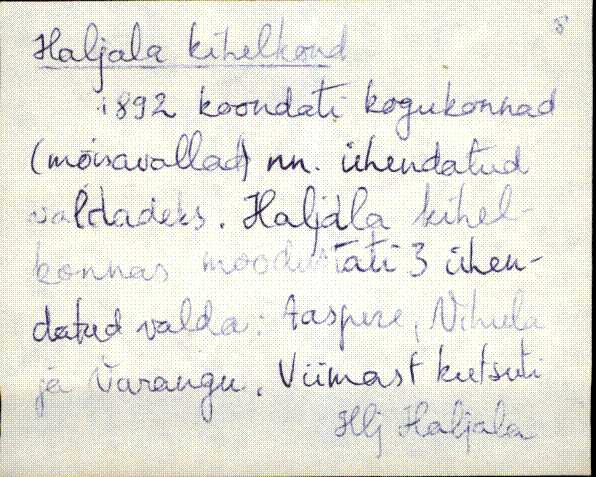 Haljala kihelkond
1892 koondati kogukonnad
(mõisavallad) nn. ühendatud
valdadeks. Haljala kihel-
konnas moodustati 3 ühen-
datud valda: Aaspere, Vihula
ja Varangu. Viimast kutsuti
Hlj Haljala